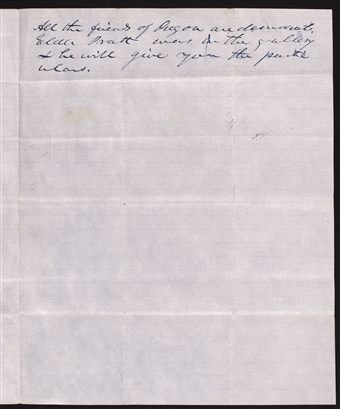 All the friends of Oregon are democrats.
Elder Pratt was in the gallery
& he will give you the parti
culars.